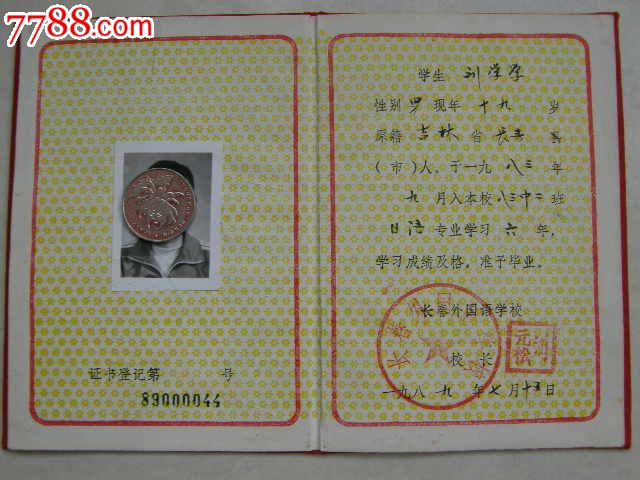 7788.com
证书登记第 号
89000044
学生 刘学孚
性别 男 现年 十九 岁
原籍 吉林 省 长春 县
(市)人,于一九 八三 年
九 月入本校 八三中二 班
日语 专业学习 六 年,
学习成绩及格,准予毕业。
长春外国语学校
校 长
一九八 九 年 七 月 十五 日